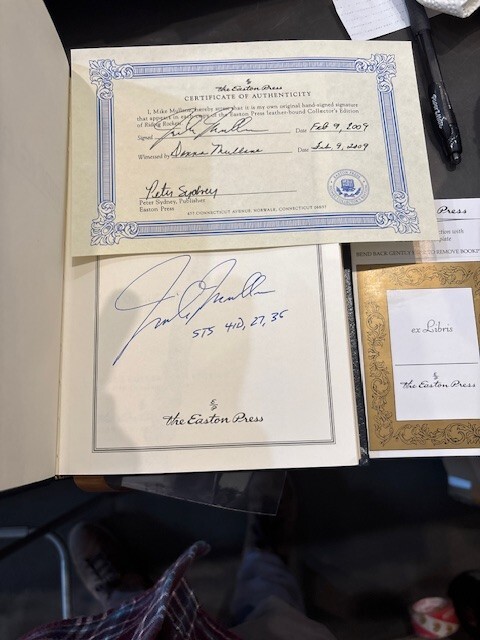 The Easton Press
CERTIFICATE OF AUTHENTICITY
I, Mike Mullane, hereby attest that it is my own original hand-signed signature
that appears in each copy of the Easton Press leather-bound Collector's Edition
of Riding Rockets.
Signed Date Feb 9, 2009
Witnessed by Donna Mullane Date Feb 9, 2009
Peter Sydney
Peter Sydney, Publisher
Easton Press
47 CONNECTICUT AVENUE, NORWALK, CONNECTICUT 06857
STS 41D, 27, 36
The Easton Press
Press
ction with
plate
BEND BACK GENTLY TO REMOVE BOOKP
ex Libris
The Easton Press